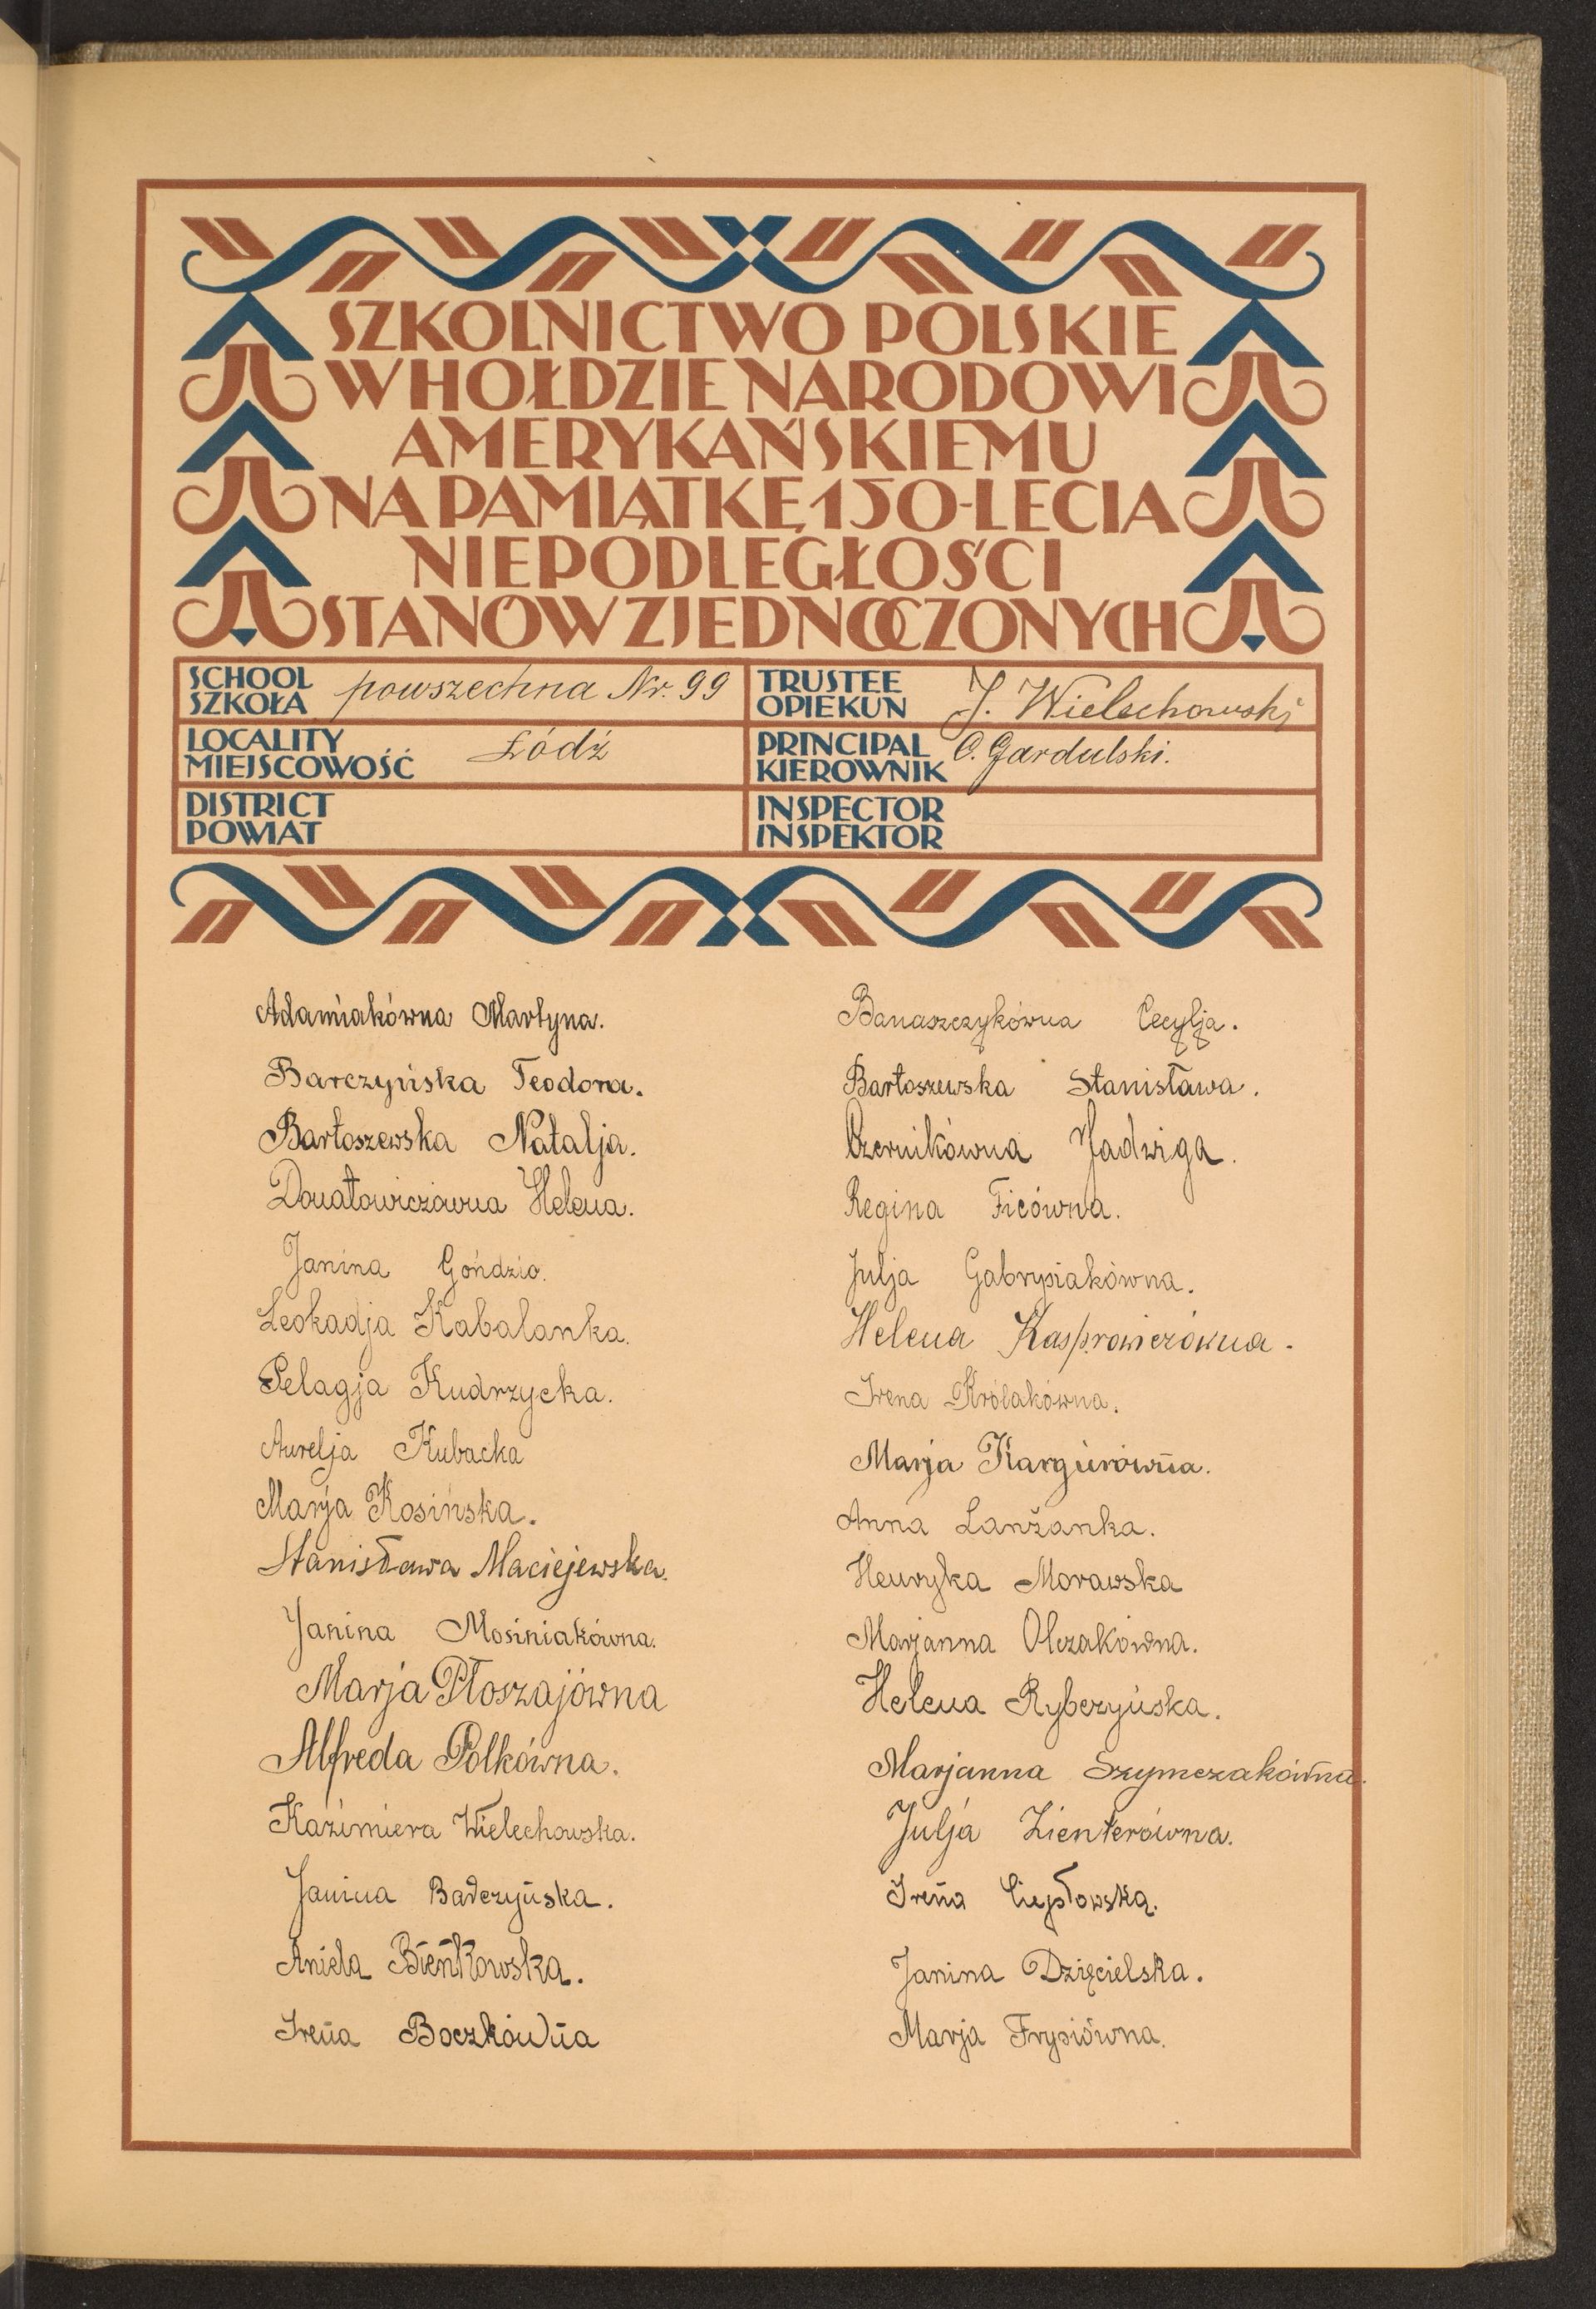 SZKOLNICTWO POLSKIE
W HOŁDZIE NARODOWI
AMERYKAŃSKIEMU
NA PAMIĄTKĘ 150-LECIA
NIEPODLEGŁOŚCI
STANÓW ZJEDNOCZONYCH
SCHOOL
SZKOŁA powszechna Nr. 99
TRUSTEE
OPIEKUN J. Wielechowski
LOCALITY
MIEJSCOWOŚĆ Łódź
PRINCIPAL
KIEROWNIK O. Gardulski.
DISTRICT
POWIAT
INSPECTOR
INSPEKTOR
Adamiakówna Martyna.
Barczyńska Teodora.
Bartoszewska Natalja.
Donatowiczówna Helena.
Janina Gońdzio.
Leokadja Kabalanka.
Pelagja Kudrzycka.
Aurelja Kubacka
Marja Kosińska.
Stanisława Maciejewska.
Janina Mosiniakówna.
Marja Płoszajówna
Alfreda Polkówna.
Kazimiera Wielechowska.
Janina Badczyńska.
Aniela Bieńkowska.
Irena Boczkówna
Banaszczykówna Cecylja.
Bartoszewska Stanisława.
Czernikówna Jadwiga.
Regina Ficówna.
Julja Gabrysiakówna.
Helena Kasprowiczówna.
Irena Królakówna.
Marja Kargierówna.
Anna Lanżanka.
Henryka Morawska
Marjanna Olczakówna.
Helena Rybczyńska.
Marjanna Szymczakówna.
Julja Zienterówna.
Irena Ciepłowska.
Janina Dzięcielska.
Marja Frysiówna.